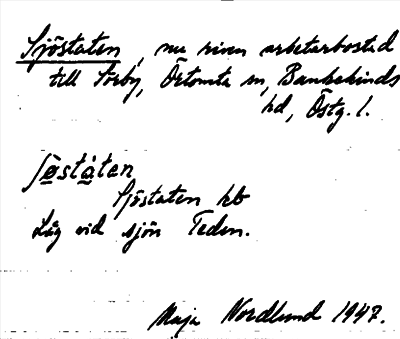 Sjöstaten, nu riven arbetarbostad
till Sörby, Örtomta sn, Bankekinds
hd, Östg. l.
Sjöstaten kb
Låg vid sjön Teden.
Maja Nordlund 1947.